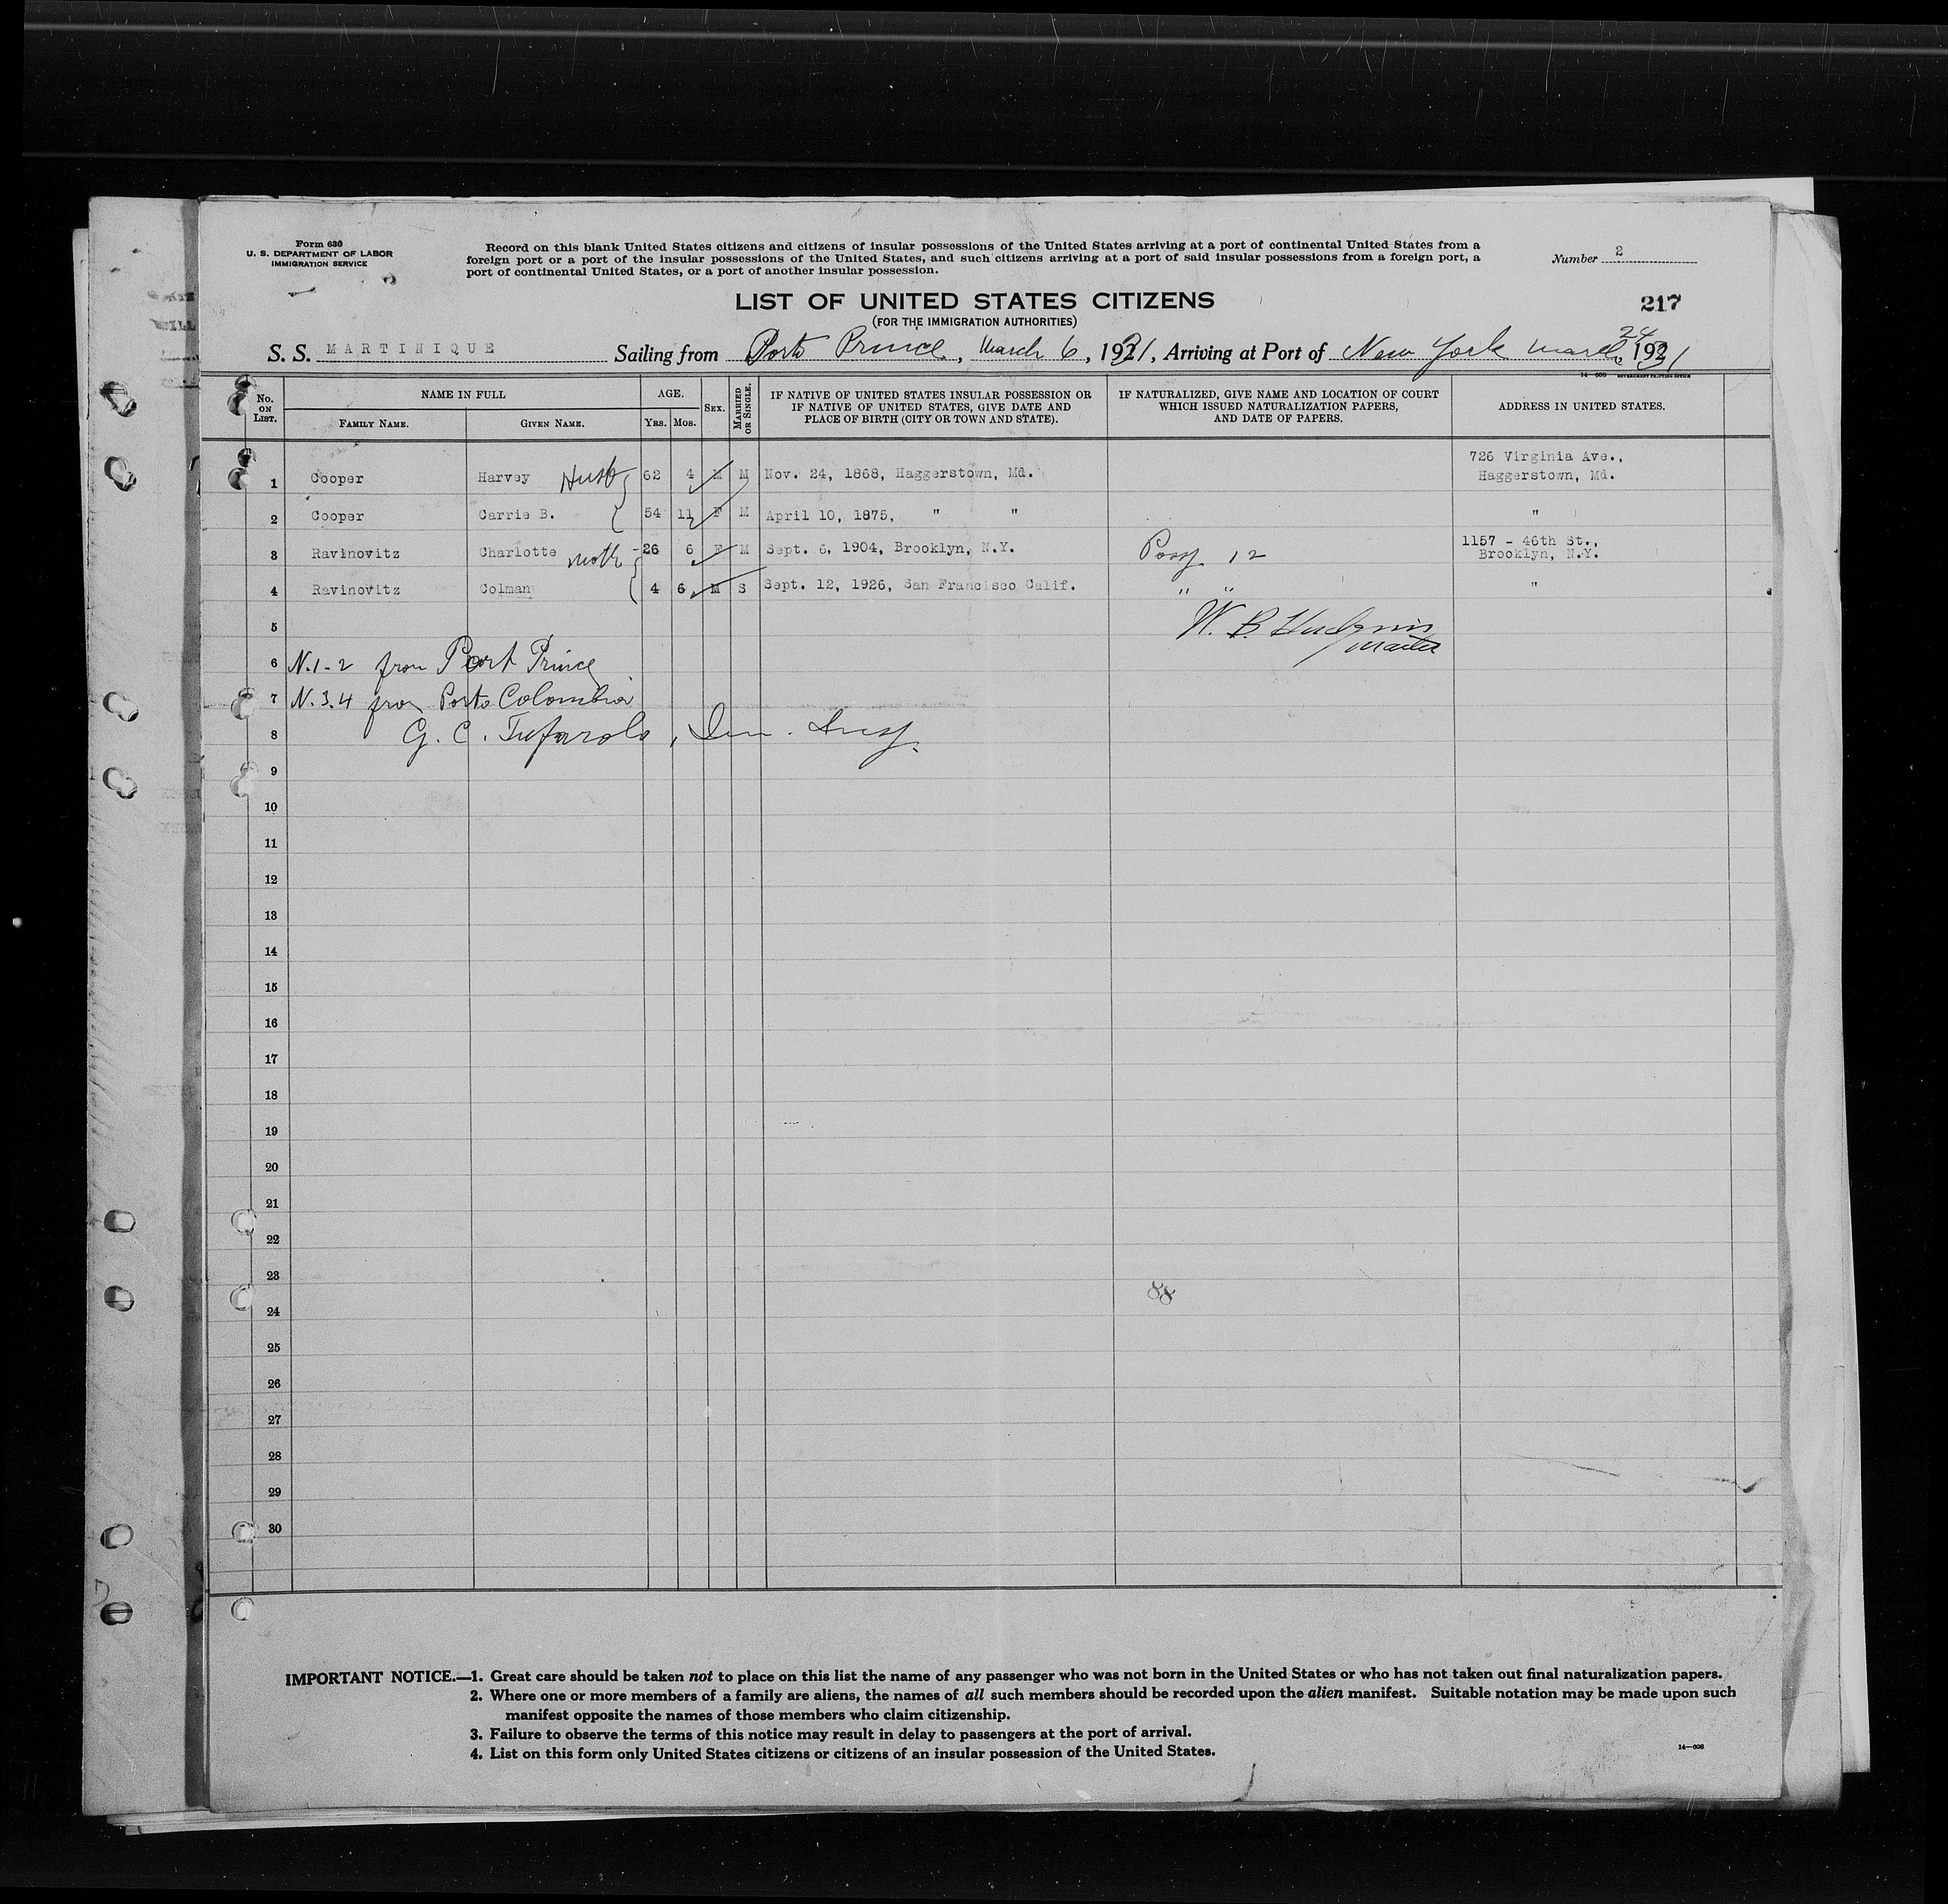 Form 630
U. S. DEPARTMENT OF LABOR
IMMIGRATION SERVICE
Record on this blank United States citizens and citizens of insular possessions of the United States arriving at a port of continental United States from a
foreign port or a port of the insular possessions of the United States, and such citizens arriving at a port of said insular possessions from a foreign port, a
port of continental United States, or a port of another insular possession.
Number 2
LIST OF UNITED STATES CITIZENS
217
(FOR THE IMMIGRATION AUTHORITIES)
S. S. MARTINIQUE Sailing from Porto Prince, March 6, 1931, Arriving at Port of New York March 24 1931
No. ON LIST. NAME IN FULL AGE. SEX. MARRIED OR SINGLE. IF NATIVE OF UNITED STATES INSULAR POSSESSION OR IF NATIVE OF UNITED STATES, GIVE DATE AND PLACE OF BIRTH (CITY OR TOWN AND STATE). IF NATURALIZED, GIVE NAME AND LOCATION OF COURT WHICH ISSUED NATURALIZATION PAPERS, AND DATE OF PAPERS. ADDRESS IN UNITED STATES.
FAMILY NAME. GIVEN NAME. YRS. MOS.
1 Cooper Harvey Husb 62 4 M M Nov. 24, 1868, Haggerstown, Md. 726 Virginia Ave., Haggerstown, Md.
2 Cooper Carrie B. 54 11 F M April 10, 1875, " " "
3 Ravinovitz Charlotte moth 26 6 F M Sept. 6, 1904, Brooklyn, N.Y. 12 1157 - 46th St., Brooklyn, N.Y.
4 Ravinovitz Colman 4 6 M S Sept. 12, 1926, San Francisco Calif. " " "
5 W. B. Hudgins
Master
6 N.1-2 from Port Prince
7 N.3.4 from Porto Colombia
8 G. C. Tufarolo, Im. Insp.
9
10
11
12
13
14
15
16
17
18
19
20
21
22
23
88
24
25
26
27
28
29
30
IMPORTANT NOTICE.—1. Great care should be taken not to place on this list the name of any passenger who was not born in the United States or who has not taken out final naturalization papers.
2. Where one or more members of a family are aliens, the names of all such members should be recorded upon the alien manifest. Suitable notation may be made upon such
manifest opposite the names of those members who claim citizenship.
3. Failure to observe the terms of this notice may result in delay to passengers at the port of arrival.
4. List on this form only United States citizens or citizens of an insular possession of the United States.
14—608